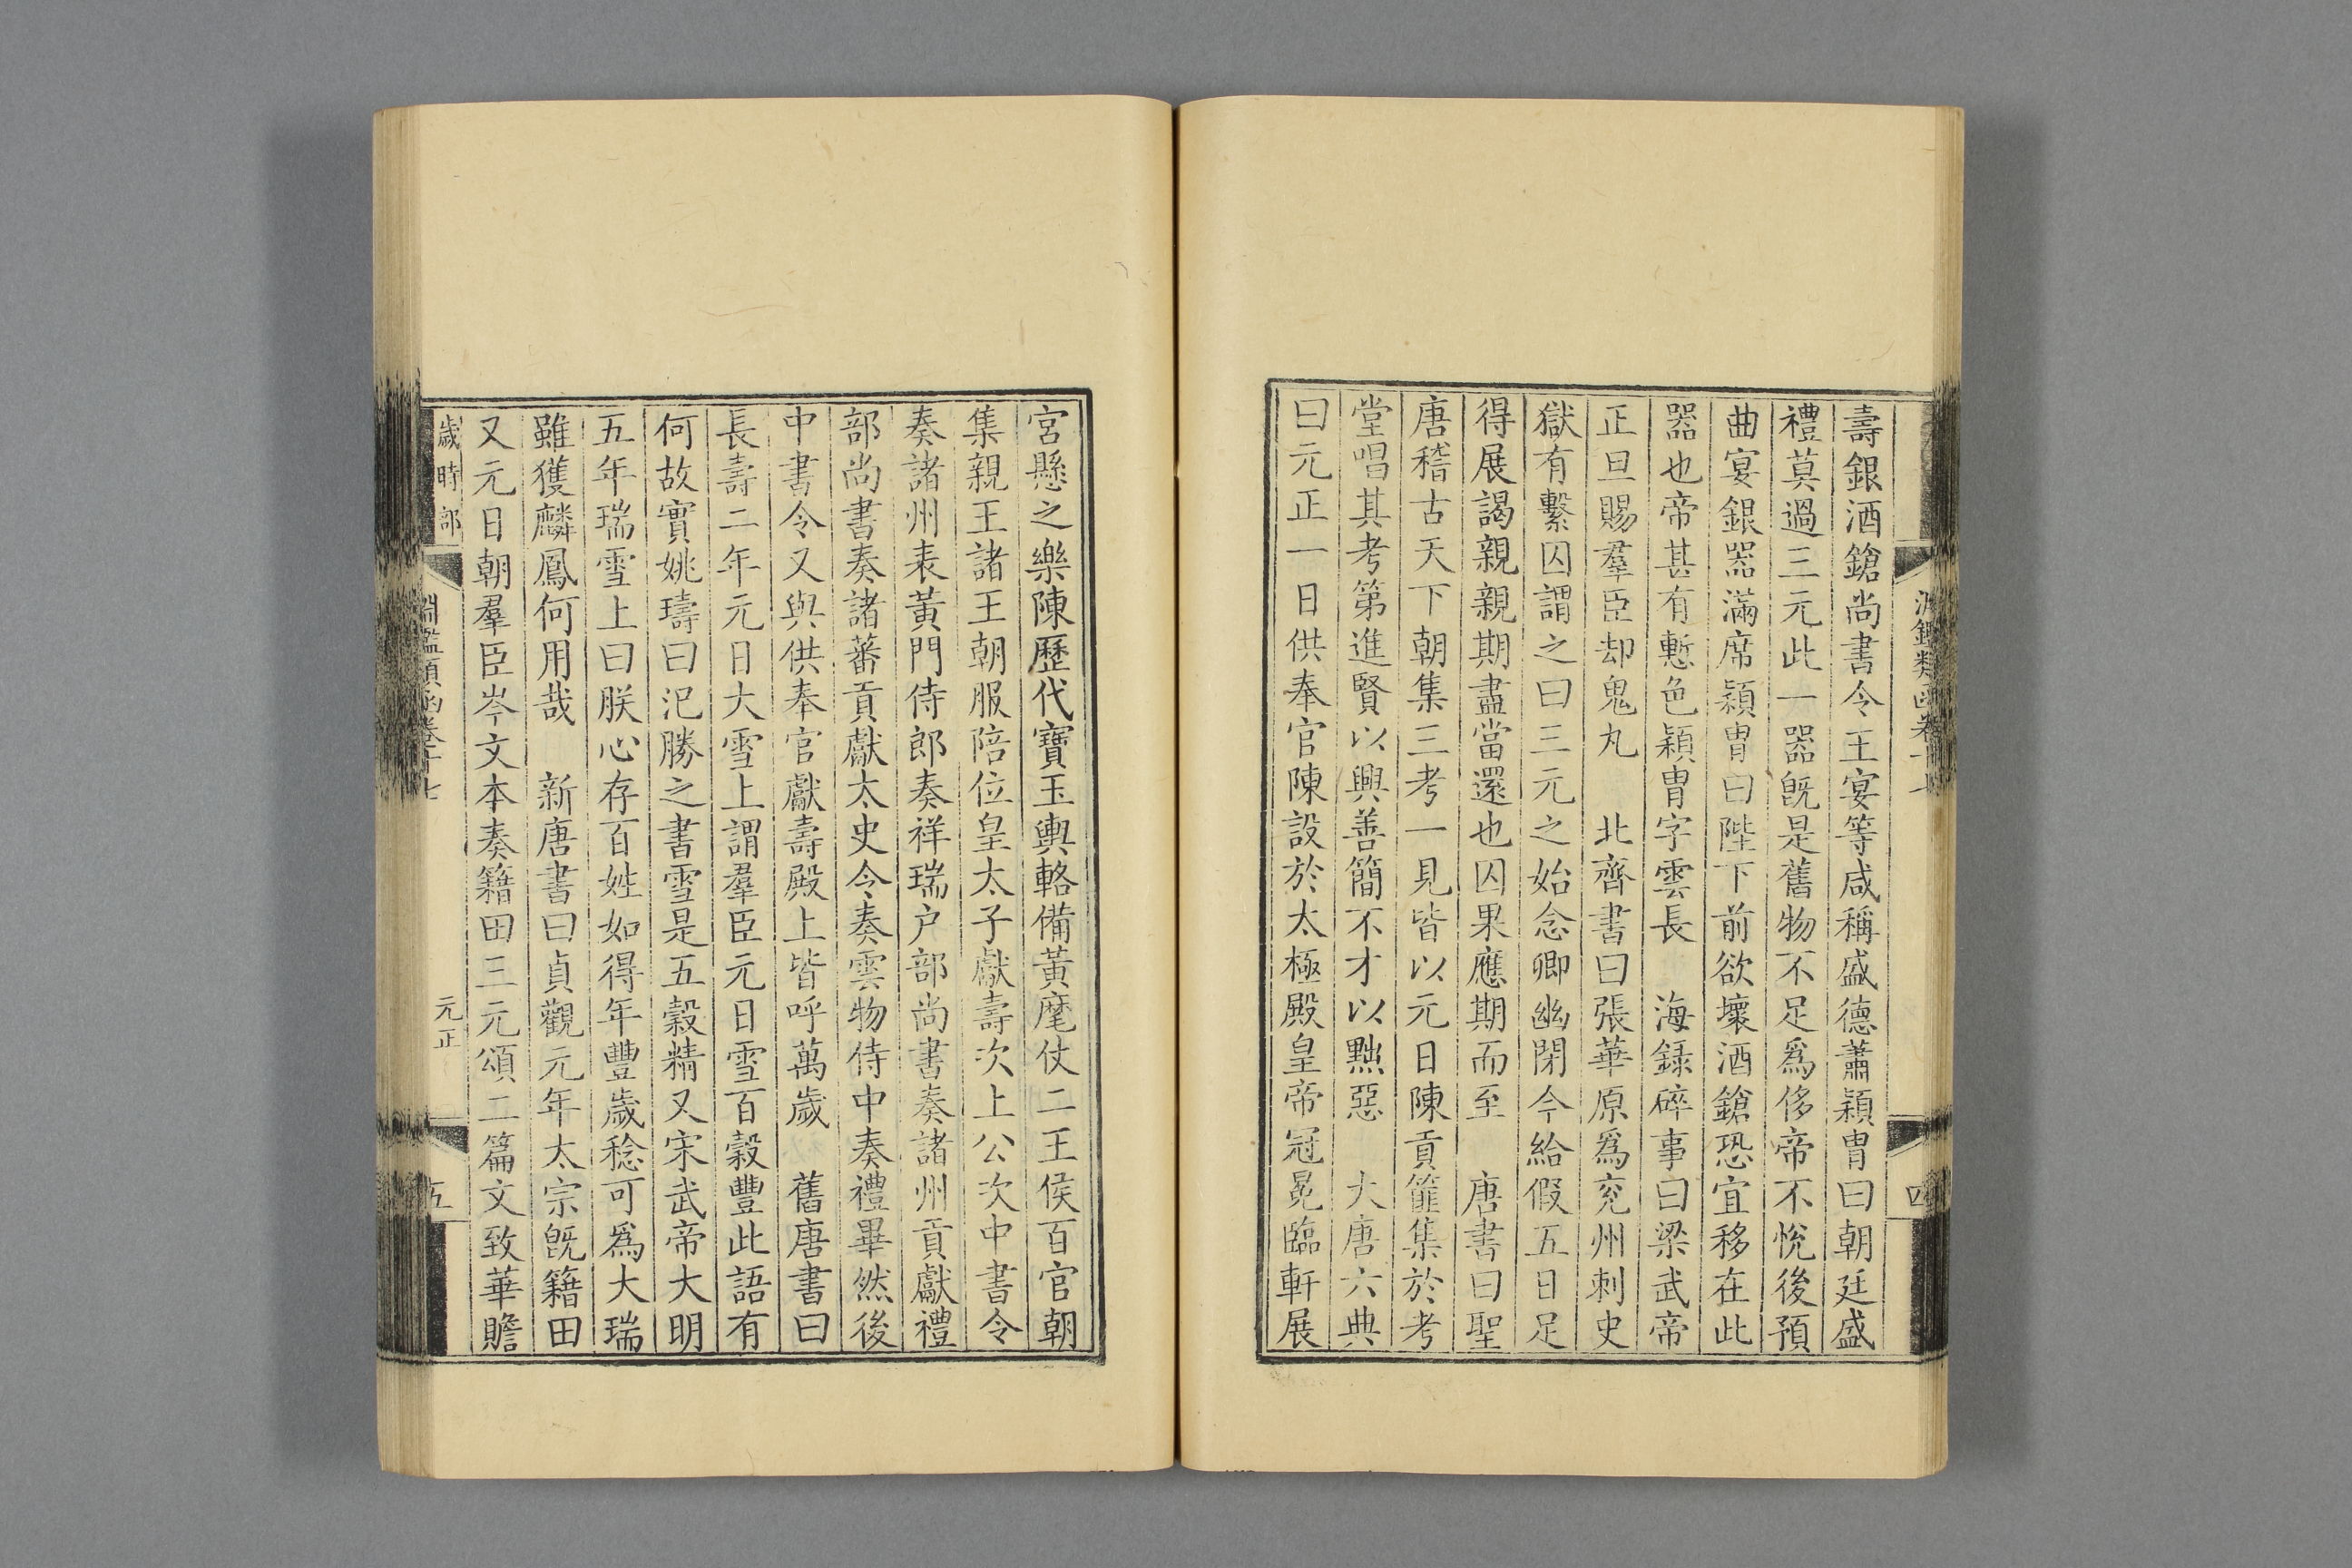 壽銀酒鎗尚書令王宴等咸稱盛德蕭穎胄曰朝廷盛
禮莫過三元此一器旣是舊物不足爲侈帝不悅後預
曲宴銀器滿席穎胄曰陛下前欲壞酒鎗恐宜移在此
器也帝甚有慙色穎胄字雲長　海錄碎事曰梁武帝
正旦賜羣臣却鬼丸　北齊書曰張華原爲兖州刺史
獄有繫囚謂之曰三元之始念卿幽閉今給假五日足
得展謁親親期盡當還也囚果應期而至　唐書曰聖
唐稽古天下朝集三考一見皆以元日陳貢篚集於考
堂唱其考第進賢以興善簡不才以黜惡　大唐六典
曰元正一日供奉官陳設於太極殿皇帝冠冕臨軒展
宮懸之樂陳歷代寶玉輿輅備黃麾仗二王侯百官朝
集親王諸王朝服陪位皇太子獻壽次上公次中書令
奏諸州表黃門侍郎奏祥瑞户部尚書奏諸州貢獻禮
部尚書奏諸蕃貢獻太史令奏雲物侍中奏禮畢然後
中書令又與供奉官獻壽殿上皆呼萬歲　舊唐書曰
長壽二年元日大雪上謂羣臣元日雪百穀豐此語有
何故實姚璹曰氾勝之書雪是五穀精又宋武帝大明
五年瑞雪上曰朕心存百姓如得年豐歲稔可爲大瑞
雖獲麟鳳何用哉　新唐書曰貞觀元年太宗旣籍田
又元日朝羣臣岑文本奏籍田三元頌二篇文致華贍
歲時部
淵鑑類函卷十七
元正
五